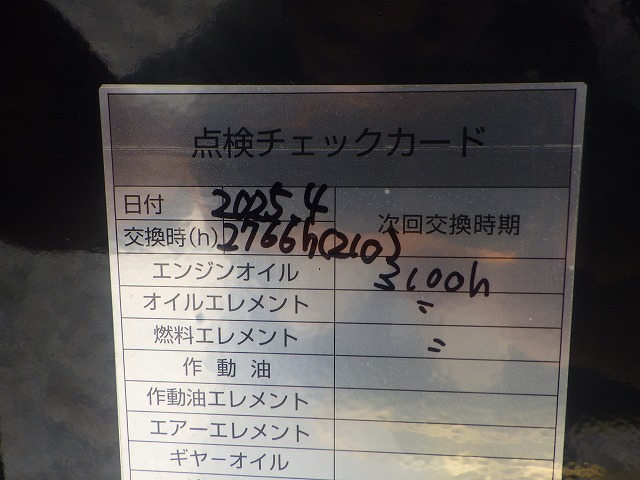 点検チェックカード
日付 2025.4
交換時(h) 2766h(210) 次回交換時期
エンジンオイル 3100h
オイルエレメント 〃
燃料エレメント 〃
作動油
作動油エレメント
エアーエレメント
ギヤーオイル